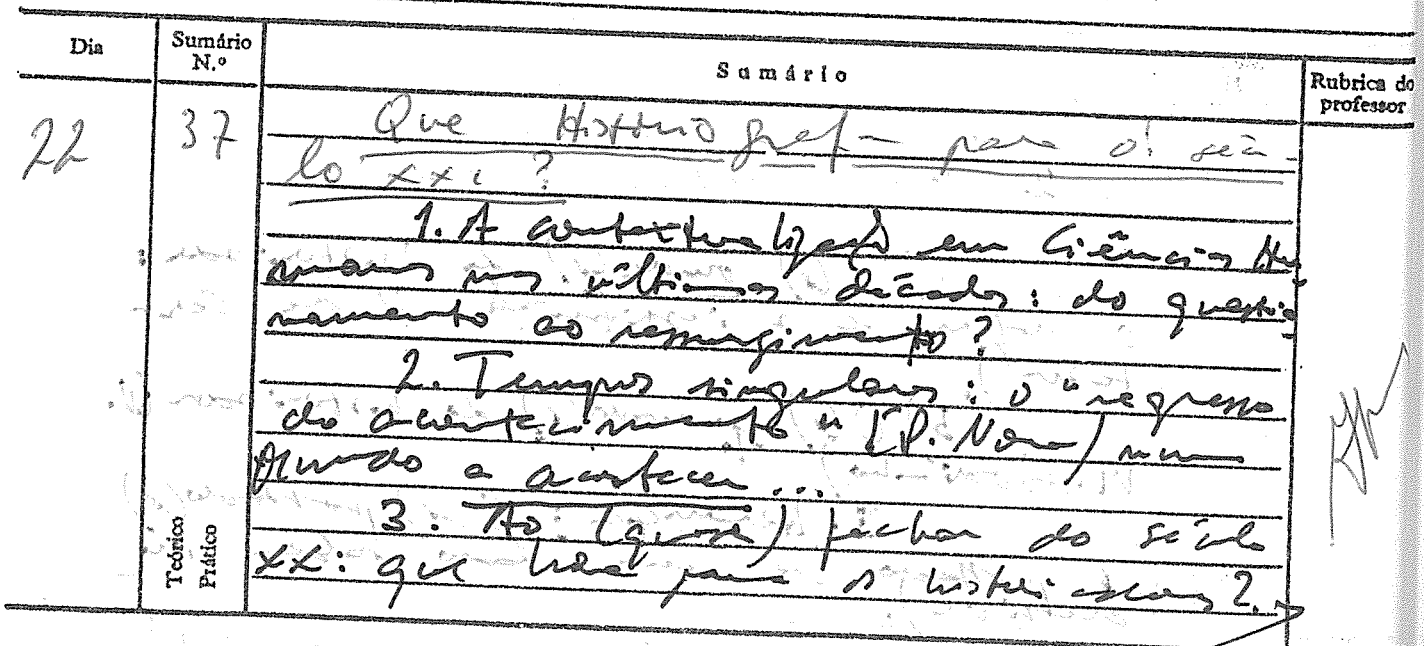 Dia Sumário N.º Sumário Rubrica do professor
22 37 Que Historiografia para o sécu-
lo XXI?
1. A contextualização em Ciências Hu-
manas nas últimas décadas: do questio-
namento ao ressurgimento?
2. Tempos singulares: o "regresso
do acontecimento" (P. Nora) num
Mundo a acontecer...
3. Ao (quase) fechar do século
XX: que para os
Teórico
Prático